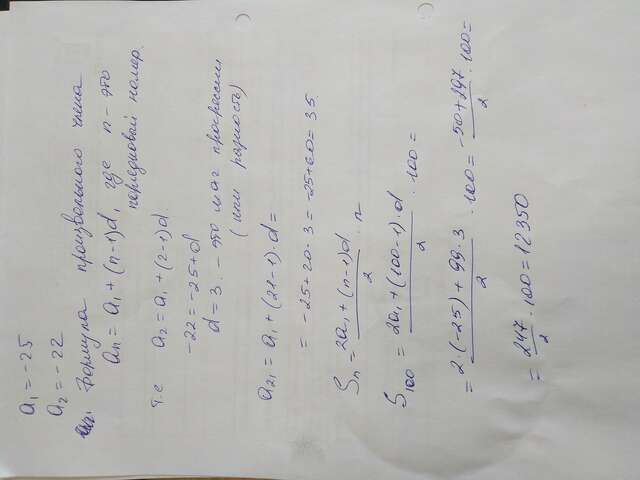 a₁ = -25
a₂ = -22
Формула произвольного члена
aₙ = a₁ + (n-1)d, где n - это
порядковый номер.
т.е a₂ = a₁ + (2-1)d
-22 = -25+d
d = 3. - это шаг прогрессии
(или разность)
a₂₁ = a₁ + (21-1)·d =
= -25+20·3 = -25+60 = 35.
Sₙ = (2a₁ + (n-1)d)/2 · n
S₁₀₀ = (2a₁ + (100-1)·d)/2 · 100 =
= (2·(-25) + 99·3)/2 · 100 = (-50+297)/2 · 100 =
= 247/2 · 100 = 12350